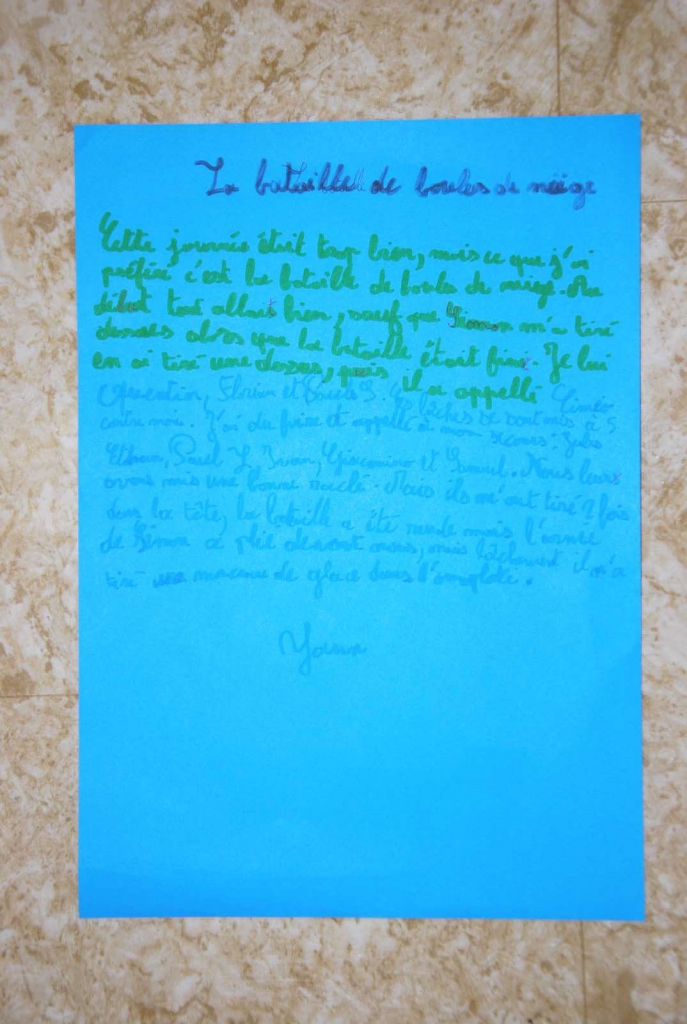 La bataille de boules de neige
Cette journée était trop bien, mais ce que j'ai
préféré c'est la bataille de boules de neige. Au
début tout allait bien, sauf que Simon m'a tiré
dessus alors que la bataille était fini. Je lui
en ai tiré une dessus, puis il a appellé
Quentin, Florian et Timéo
contre moi. J'ai du fuire et appellé à mon secours: Jules
Ethan, Paul L, Ivan, Giacomino et Samuel. Nous leurs
avons mis une bonne raclé. Mais ils m'ont tiré 2 fois
dans la tête, la bataille a été rude mais l'armé
de Simon a plié devant nous, mais lâchement il m'a
tiré une morceau de glace dans l'omoplate.
Yann